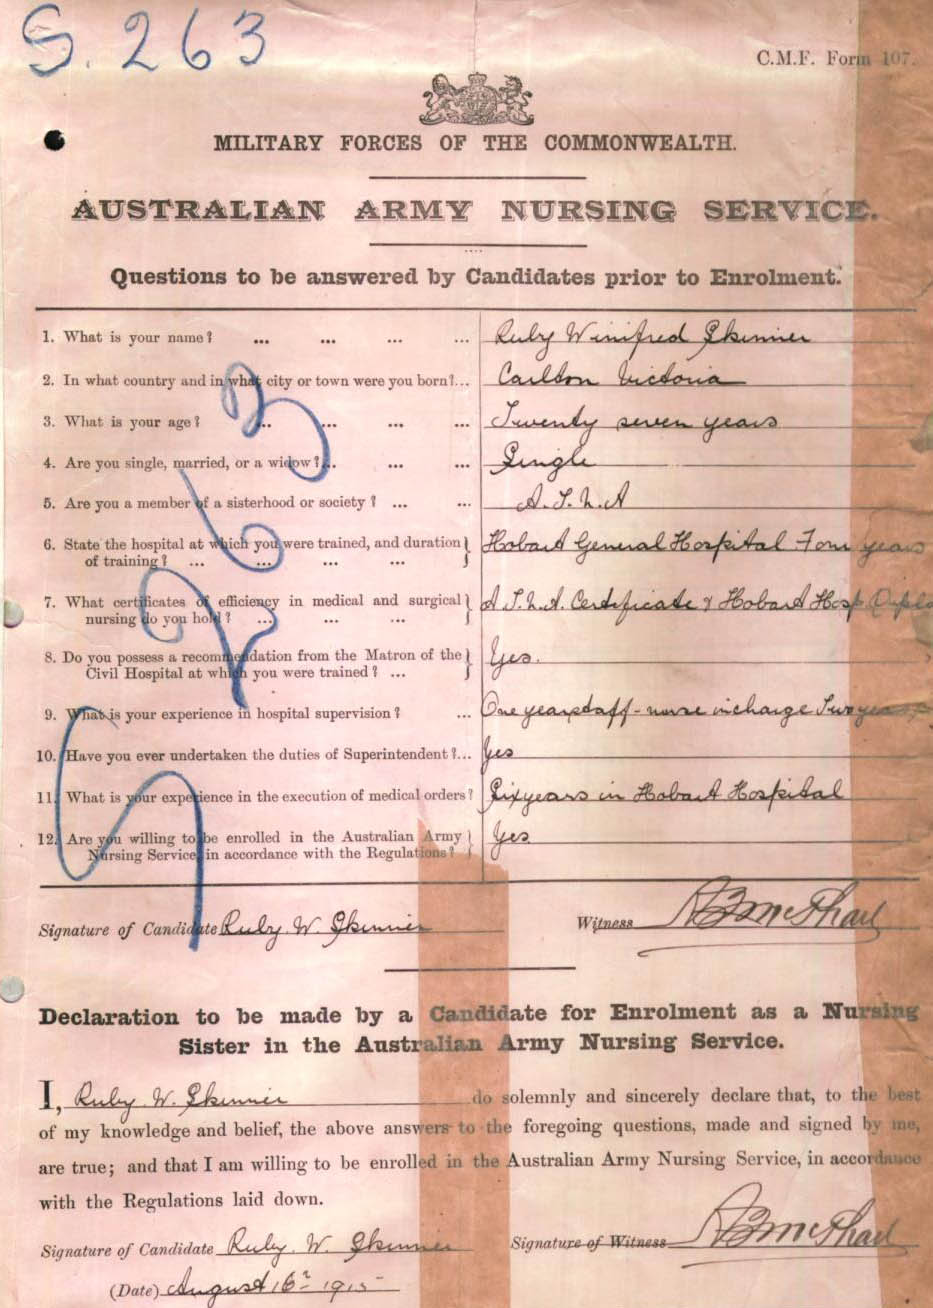 S. 263
C.M.F. Form 107.
MILITARY FORCES OF THE COMMONWEALTH.
AUSTRALIAN ARMY NURSING SERVICE.
Questions to be answered by Candidates prior to Enrolment.
1. What is your name? ... ... ... ... Ruby Winifred Skinner
2. In what country and in what city or town were you born?... Carlton Victoria
3. What is your age? ... ... ... ... Twenty seven years
4. Are you single, married, or a widow?... ... ... Single
5. Are you a member of a sisterhood or society? ... ... A.T.N.A
6. State the hospital at which you were trained, and duration Hobart General Hospital Four years
of training? ... ... ... ...
7. What certificates of efficiency in medical and surgical A.T.N.A. Certificate & Hobart Hosp
nursing do you hold? ... ... ...
8. Do you possess a recommendation from the Matron of the Yes.
Civil Hospital at which you were trained? ...
9. What is your experience in hospital supervision? ... One year staff-nurse incharge Two years
10. Have you ever undertaken the duties of Superintendent?... Yes
11. What is your experience in the execution of medical orders? Six years in Hobart Hospital
12. Are you willing to be enrolled in the Australian Army Yes.
Nursing Service, in accordance with the Regulations?
S 263
Signature of Candidate Ruby. W. Skinner Witness
Declaration to be made by a Candidate for Enrolment as a Nursing
Sister in the Australian Army Nursing Service.
I, Ruby. W. Skinner do solemnly and sincerely declare that, to the best
of my knowledge and belief, the above answers to the foregoing questions, made and signed by me,
are true; and that I am willing to be enrolled in the Australian Army Nursing Service, in accordance
with the Regulations laid down.
Signature of Candidate Ruby. W. Skinner Signature of Witness
(Date) August 16th 1915